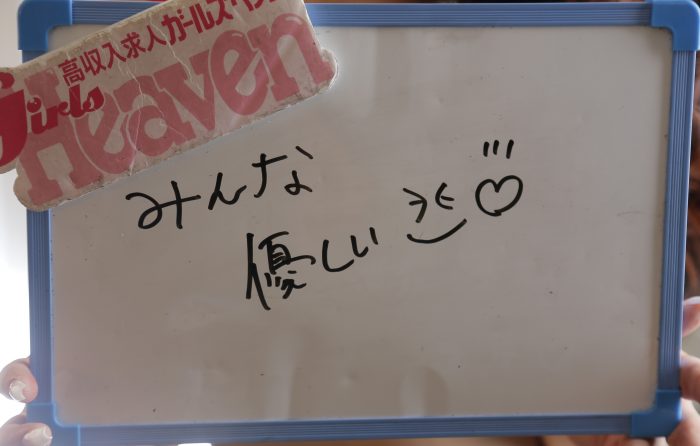 高収入求人ガールズヘブン
Girls
Heaven
みんな
優しい